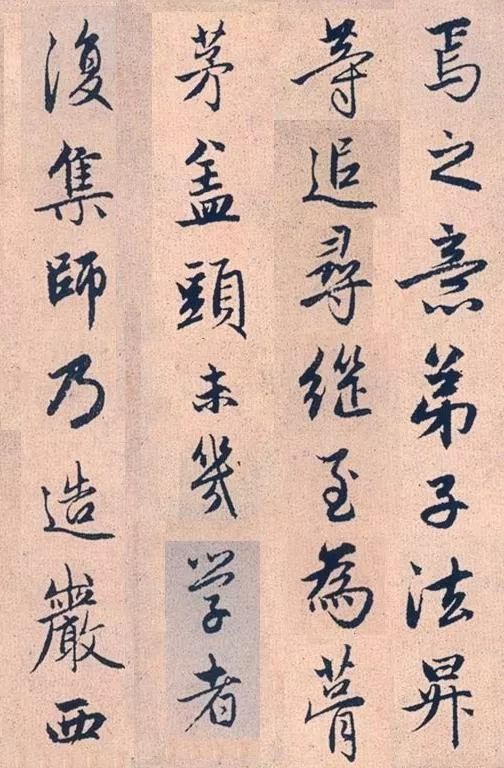 焉之意弟子法昇
等追尋継至為
茅盖頭未幾学者
復集師乃造嚴西